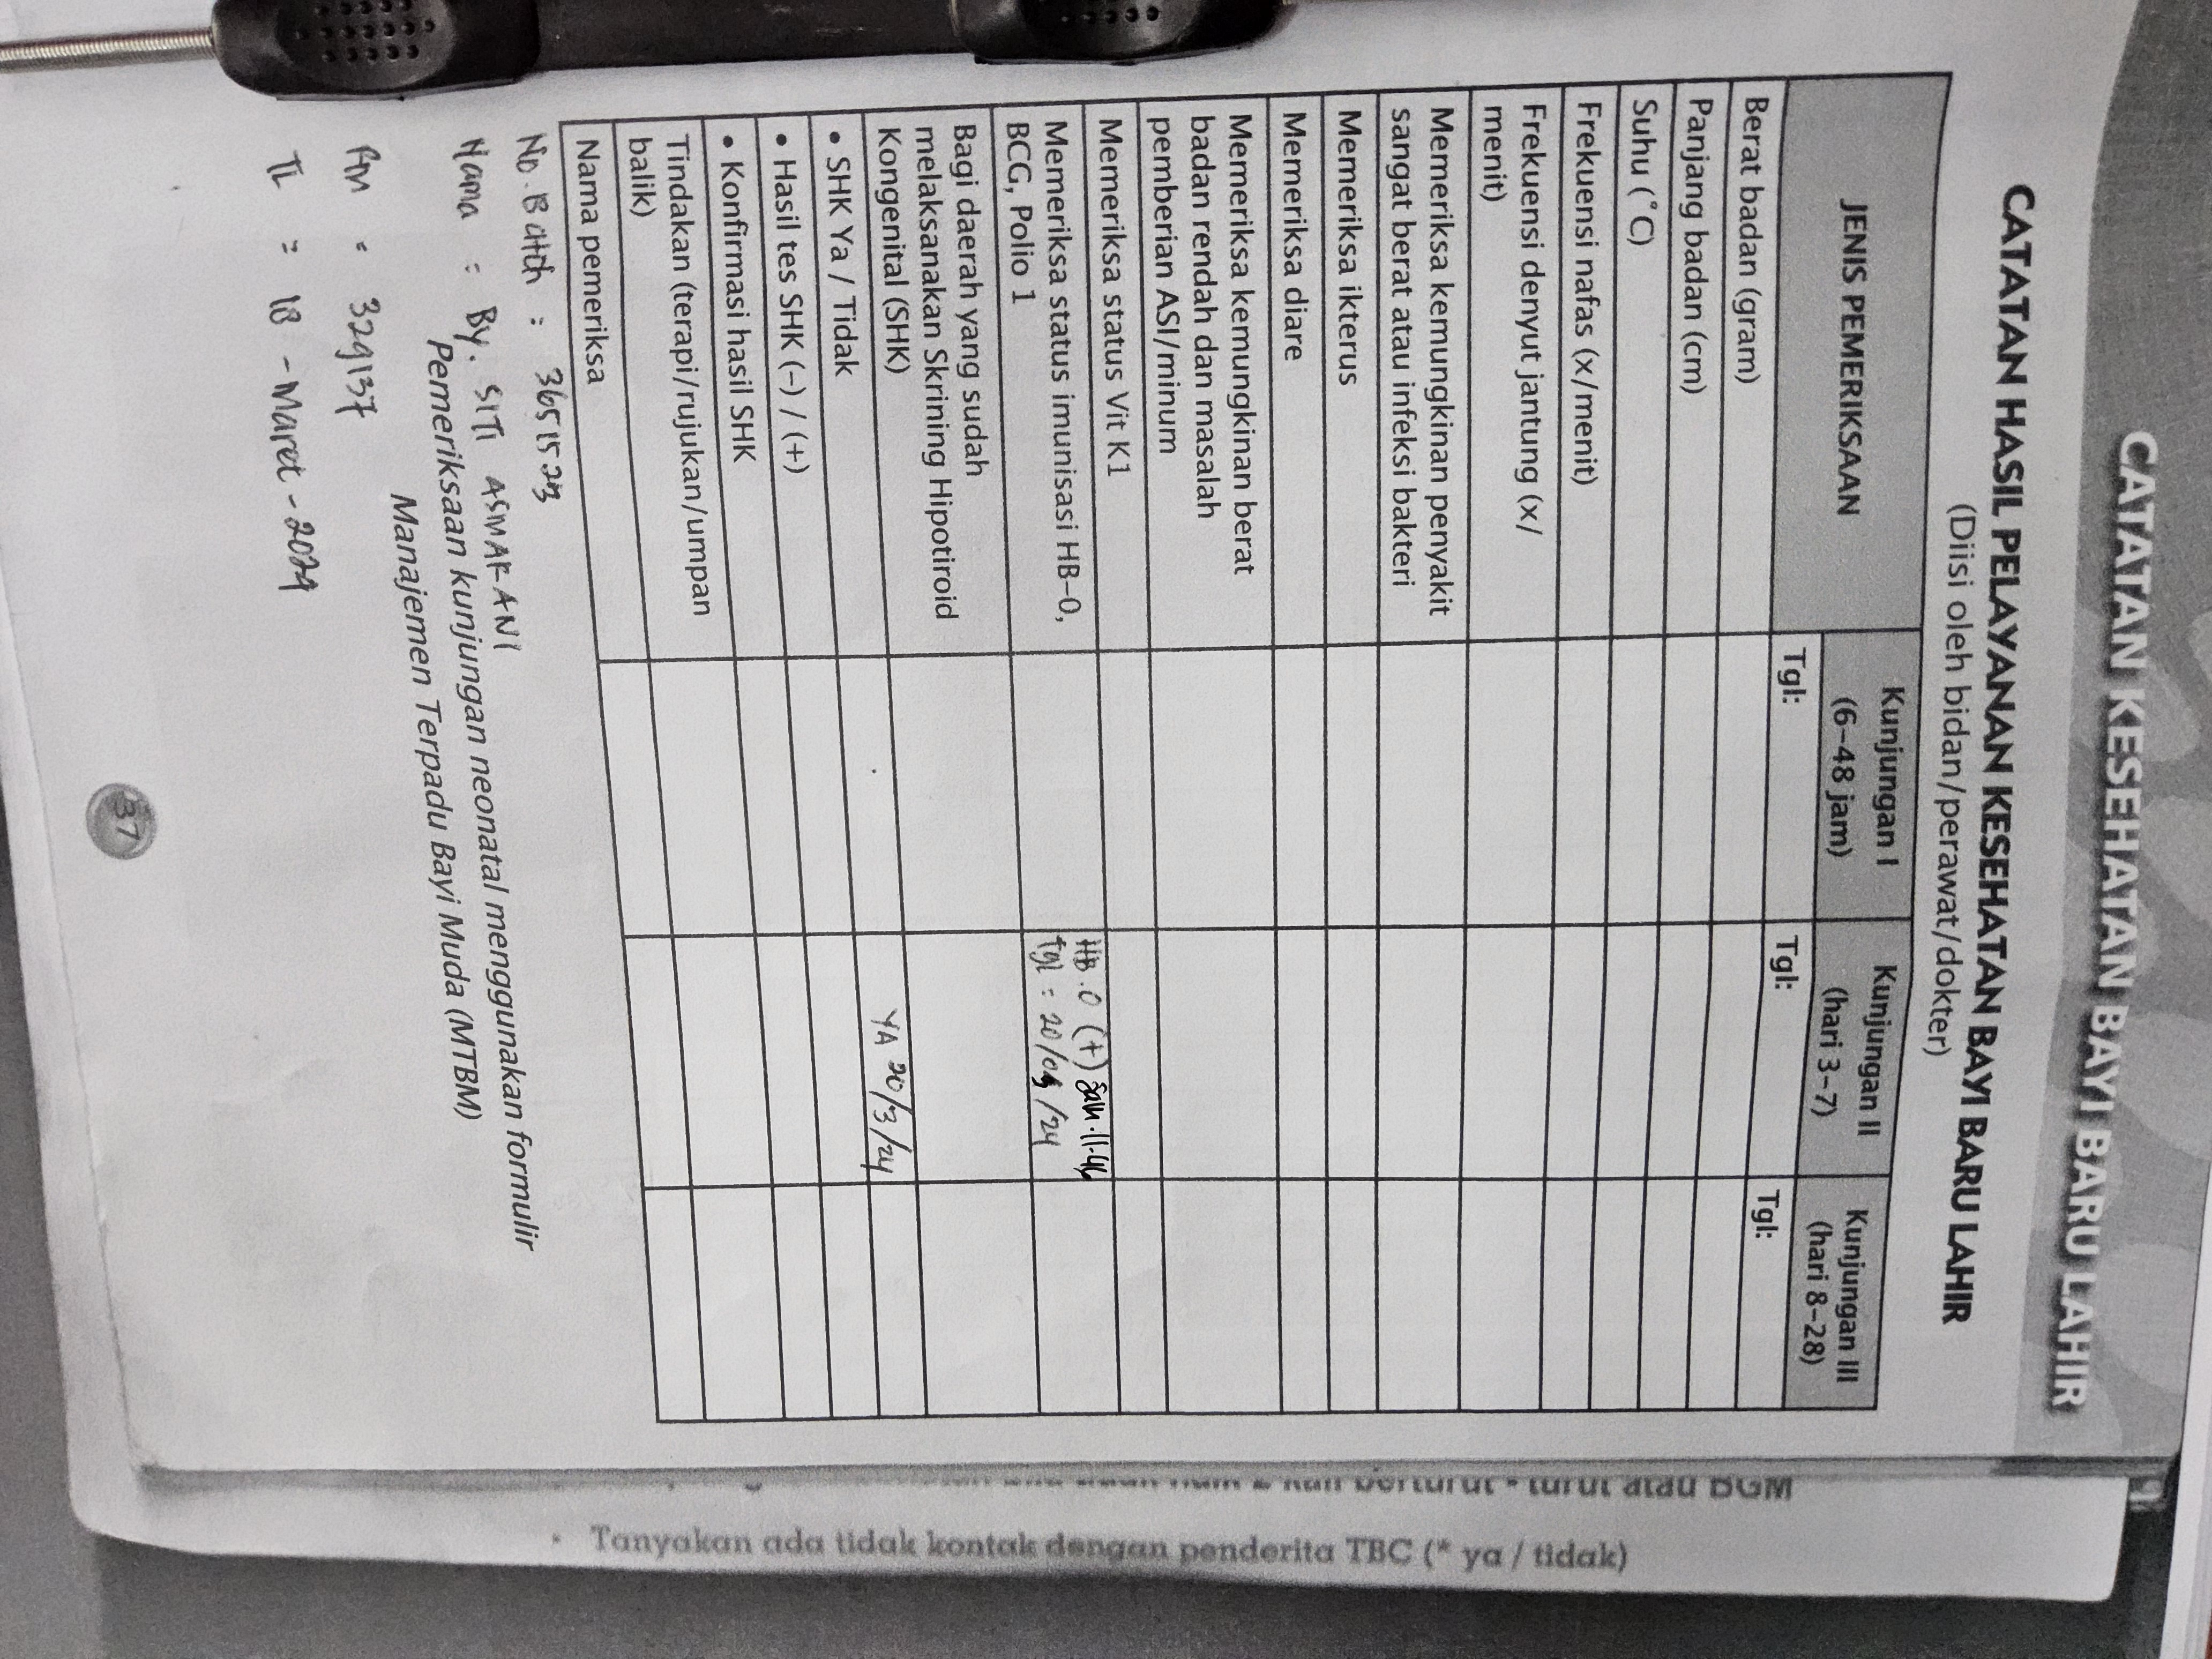 CATATAN KESEHATAN BAYI BARU LAHIR
CATATAN HASIL PELAYANAN KESEHATAN BAYI BARU LAHIR
(Diisi oleh bidan/perawat/dokter)
JENIS PEMERIKSAAN
Kunjungan I
(6–48 jam)
Kunjungan II
(hari 3–7)
Kunjungan III
(hari 8–28)
Tgl:
Tgl:
Tgl:
Berat badan (gram)
Panjang badan (cm)
Suhu (°C)
Frekuensi nafas (x/menit)
Frekuensi denyut jantung (x/
menit)
Memeriksa kemungkinan penyakit
sangat berat atau infeksi bakteri
Memeriksa ikterus
Memeriksa diare
Memeriksa kemungkinan berat
badan rendah dan masalah
pemberian ASI/minum
Memeriksa status Vit K1
Memeriksa status imunisasi HB–0,
BCG, Polio 1
HB.0 (+)
tgl = 20/
/24
Bagi daerah yang sudah
melaksanakan Skrining Hipotiroid
Kongenital (SHK)
• SHK Ya / Tidak
YA 20/3/24
• Hasil tes SHK (–) / (+)
• Konfirmasi hasil SHK
Tindakan (terapi/rujukan/umpan
balik)
Nama pemeriksa
No. Batch : 3651523
Pemeriksaan kunjungan neonatal menggunakan formulir
Manajemen Terpadu Bayi Muda (MTBM)
Nama : By. SITI ASMARANI
= 329137
TL = 18 - Maret - 2024
37
berturut - turut atau BGM
• Tanyakan ada tidak kontak dengan penderita TBC (* ya / tidak)